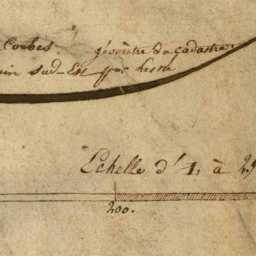 Corbes. géomètre du Cadastre.
sud-Est
Echelle d' 1, à 2
200.